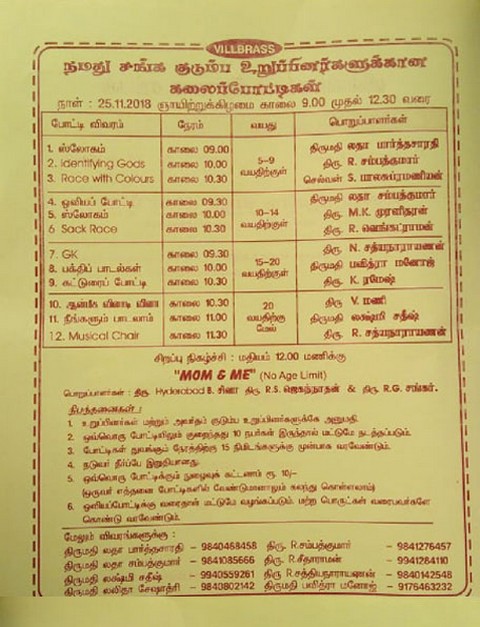 VILLBRASS
நமது சங்க குடும்ப உறுப்பினர்களுக்கான
கலைப்போட்டிகள்
நாள் : 25.11.2018 ஞாயிற்றுக்கிழமை காலை 9.00 முதல் 12.30 வரை
போட்டி விவரம் நேரம் வயது பொறுப்பாளர்கள்
1. ஸ்லோகம் காலை 09.00 திருமதி லதா பார்த்தசாரதி
2. Identifying Gods காலை 10.00 5-9 வயதிற்குள் திரு. R. சம்பத்குமார்
3. Race with Colours காலை 10.30 செல்வன் S. பாலசுப்ரமணியன்
4. ஓவியப் போட்டி காலை 09.30 திருமதி லதா சம்பத்குமார்
5. ஸ்லோகம் காலை 10.00 10-14 வயதிற்குள் திரு. M.K. முரளிதரன்
6 Sack Race காலை 10.30 திரு. R. வெங்கட்ராமன்
7. GK காலை 09.30 திரு. N. சத்யநாராயணன்
8. பக்திப் பாடல்கள் காலை 10.00 15-20 வயதிற்குள் திருமதி பவித்ரா மனோஜ்
9. கட்டுரைப் போட்டி காலை 10.30 திரு. K. ரமேஷ்
10. ஆன்மீக வினாடி வினா காலை 10.30 திரு V. மணி
11. நீங்களும் பாடலாம் காலை 11.00 20 வயதிற்கு மேல் திருமதி லக்ஷ்மி சதீஷ்
12. Musical Chair காலை 11.30 திரு. R. சத்யநாராயணன்
சிறப்பு நிகழ்ச்சி : மதியம் 12.00 மணிக்கு
"MOM & ME" (No Age Limit)
பொறுப்பாளர்கள் : திரு. Hyderabad B. சிவா திரு. R.S. ஜெகந்நாதன் & திரு. R.G. சங்கர்.
நிபந்தனைகள் :
1. உறுப்பினர்கள் மற்றும் அவர்தம் குடும்ப உறுப்பினர்களுக்கே அனுமதி.
2. ஒவ்வொரு போட்டியிலும் குறைந்தது 10 நபர்கள் இருந்தால் மட்டுமே நடத்தப்படும்.
3. போட்டிகள் துவங்கும் நேரத்திற்கு 15 நிமிடங்களுக்கு முன்பாக வரவேண்டும்.
4. நடுவர் தீர்ப்பே இறுதியானது.
5. ஒவ்வொரு போட்டிக்கும் நுழைவுக் கட்டணம் ரூ. 10/-
(ஒருவர் எத்தனை போட்டிகளில் வேண்டுமானாலும் கலந்து கொள்ளலாம்)
6. ஓவியப்போட்டிக்கு வரைதாள் மட்டுமே வழங்கப்படும். மற்ற பொருட்கள் வரைபவர்களே
கொண்டு வரவேண்டும்.
மேலும் விவரங்களுக்கு :
திருமதி லதா பார்த்தசாரதி - 9840468458 திரு. R.சம்பத்குமார் - 9841276457
திருமதி லதா சம்பத்குமார் - 9841085666 திரு. R.சீதாராமன் - 9941284110
திருமதி லக்ஷ்மி சதீஷ் - 9940559261 திரு. R.சத்தியநாராயணன் - 9840142548
திருமதி லலிதா சேஷாத்ரி - 9840802142 திருமதி பவித்ரா மனோஜ் - 9176463232